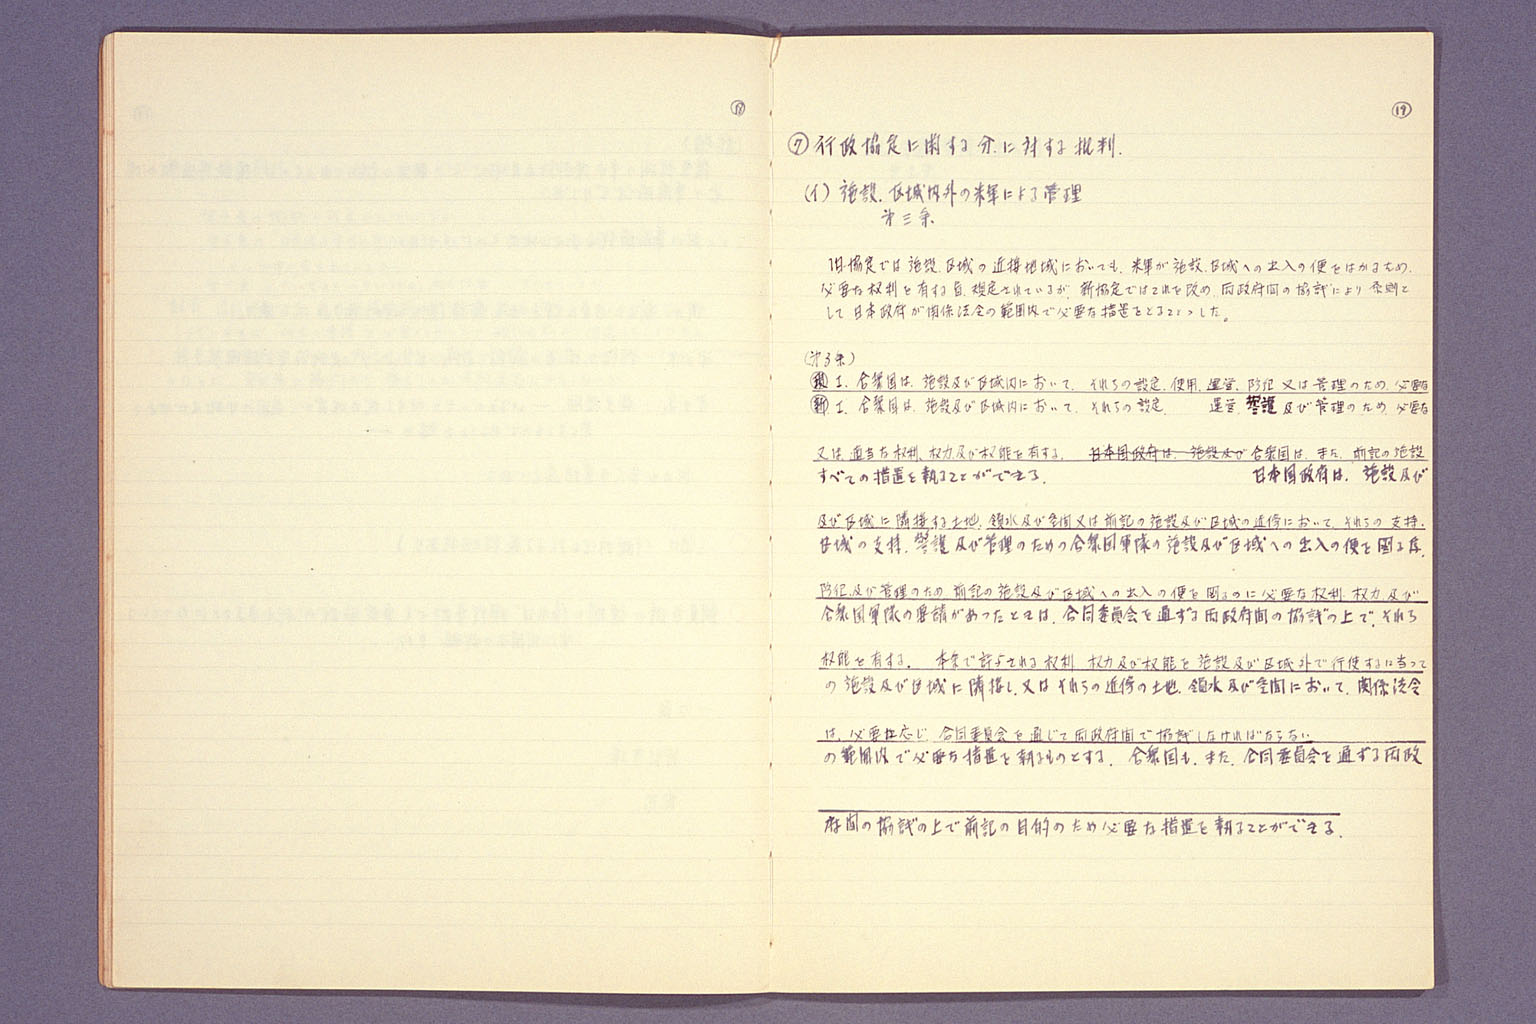 ⑱
⑲
⑦ 行政協定に関する分に対する批判.
(イ) 施設.区域内外の米軍による管理
第三条.
旧協定では施設.区域の近接地域においても.米軍が施設.区域への出入の便をはかるため.
必要な权利を有する旨.規定されているが.新協定ではこれを改め.両政府間の協議により原則と
して日本政府が関係法令の範囲内で必要な措置をとることゝした。
(第3条)
1. 合衆国は.施設及び区域内において.それらの設定.使用.運営.防衛又は管理のため.必要な
新 1. 合衆国は.施設及び区域内において.それらの設定. 運営.警護及び管理のため.必要な
又は適当な权利.权力及び权能を有する. 日本国政府は.施設及び合衆国は.また.前記の施設
すべての措置を執ることができる. 日本国政府は.施設及び
及び区域に隣接する土地.領水及び空間又は前記の施設及び区域の近傍において.それらの支持.
区域の支持.警護及び管理のための合衆国軍隊の施設及び区域への出入の便を図る為.
防衛及び管理のため前記の施設及び区域への出入の便を図るのに必要な权利.权力及び
合衆国軍隊の要請があったときは.合同委員会を通ずる両政府間の協議の上で.それら
权能を有する. 本条で許される权利.权力及び权能を施設及び区域外で行使するに当って
の施設及び区域に隣接し又はそれらの近傍の土地.領水及び空間において.関係法令
は.必要に応じ.合同委員会を通じて両政府間で協議しなければならない
の範囲内で必要な措置を執るものとする. 合衆国も.また.合同委員会を通ずる両政
府間の協議の上で前記の目的のため必要な措置を執ることができる.